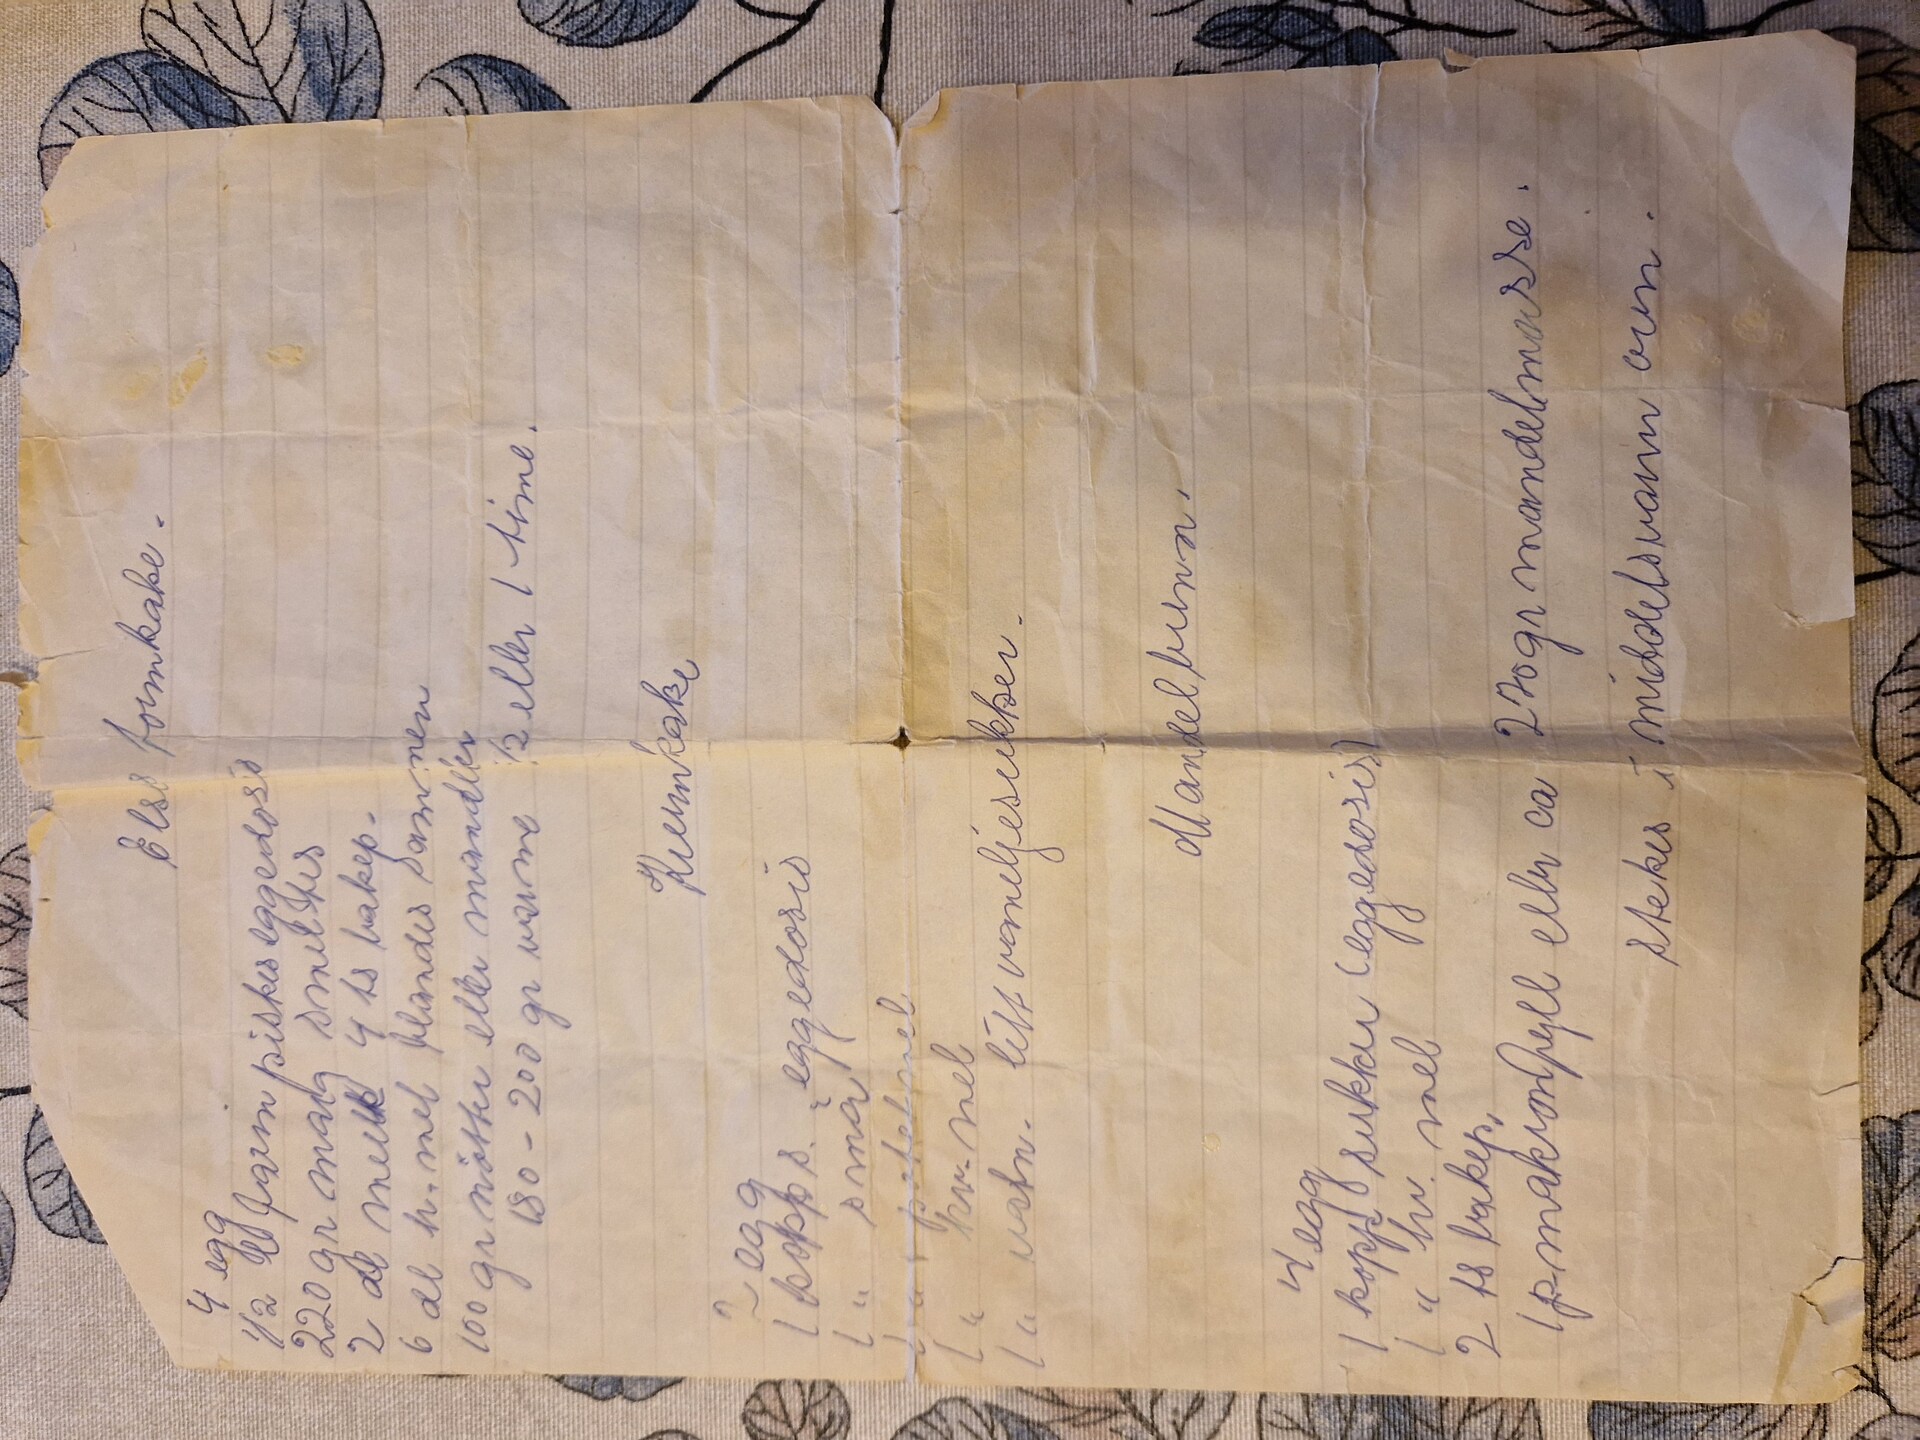 Else formkake.
4 egg
1/2 l farin piskes eggedosis
220 gr marg smeltes
2 dl melk 4 ts bakep.
6 dl h. mel blandes sammen
100 gr nötter eller mandler
180 - 200 gr varme 1/2 eller 1 time.
Krumkake
2 egg
1 kopp s. eggedosis
1 " smör
1 " potetmel
1 " hv. mel
1 " vatn. litt vaneljesukker.
Mandelbunn.
4 egg
1 kopp sukker (eggedosis)
1 " hv. mel
2 ts bakep.
1 p. makronfyll eller ca 270 gr mandelmasse.
Stekes i middelsvarm oven.